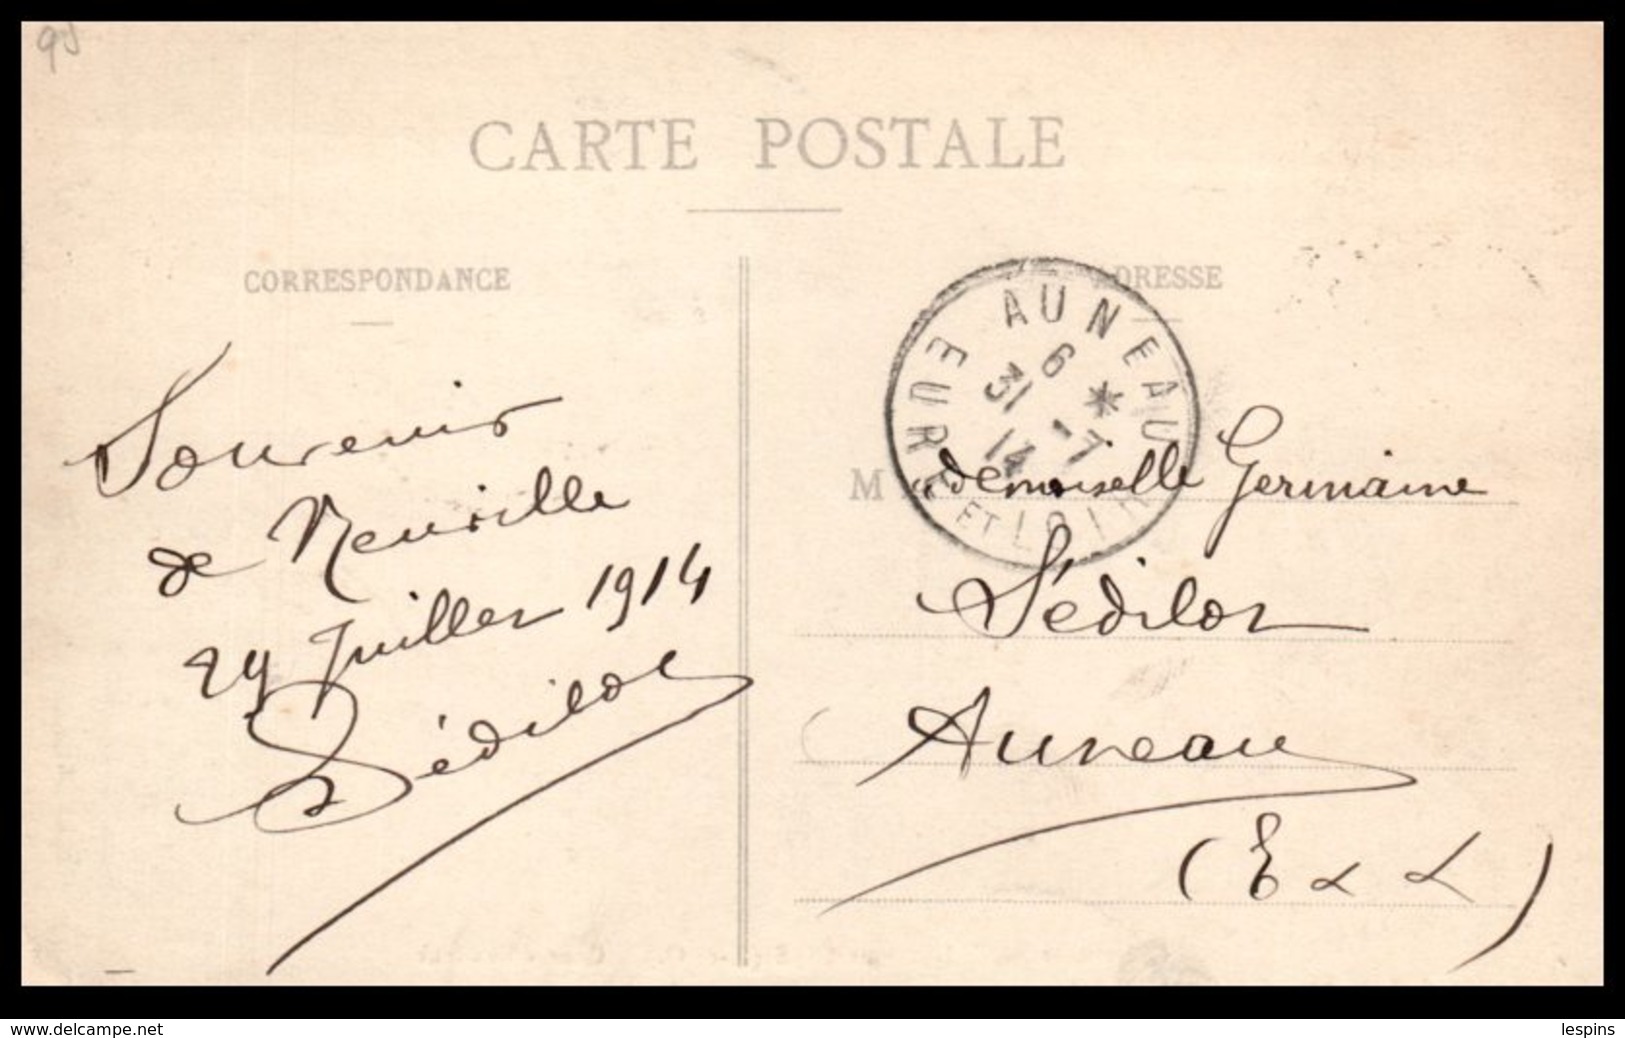 95
CARTE POSTALE
CORRESPONDANCE
ADRESSE
AUNEAU
6 *
31 -7
14
EURE ET LOIR
Souvenir
de Neuville
29 Juillet 1914
Sédilot
Mademoiselle Germaine
Sédilot
Auneau
(E & L)
www.delcampe.net
lespins